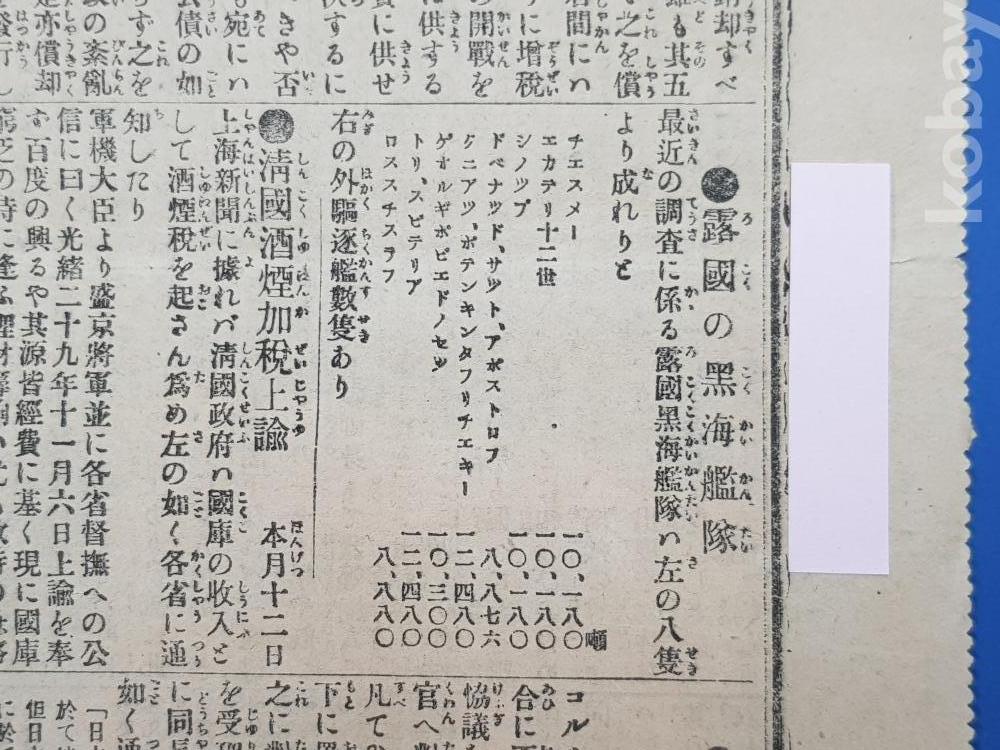 却すべ
も其五
て之を償
間にハ
に增稅
の開戰を
は供する
に供せ
するに
きや否
も宛にハ
公債の如
らず之を
の紊亂
亦償却
發行し
●露國の黑海艦隊
最近の調査に係る露國黑海艦隊ハ左の八隻
より成れりと
噸
チエスメー 一〇、一八〇
エカテリ十二世 一〇、一八〇
シノツプ 一〇、一八〇
ドベナツド、サツト、アポストロフ 八、八七六
クニアツ、ポテンキンタフリチエキー 一二、四八〇
ゲオルギポビエドノセツ 一〇、三〇〇
トリ、スビテリア 一二、四八〇
ロススチスラフ 八、八八〇
右の外驅逐艦數隻あり
●淸國酒煙加稅上諭 本月十二日
上海新聞に據れバ淸國政府ハ國庫の收入と
して酒煙稅を起さん爲め左の如く各省に通
知したり
軍機大臣より盛京將軍並に各省督撫への公
信に曰く光緒二十九年十一月六日上諭を奉
す百度の興るや其源皆經費に基く現に國庫
窮乏の時に逢ふ
コル
合に
協議
官へ
凡て
下に
之に對
を受
に同
如く通
「日
於て
但日
に於
kobay